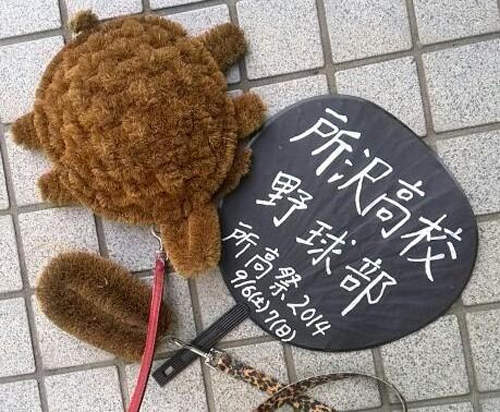 所沢高校
野球部
所高祭2014
9/6(土)7(日)